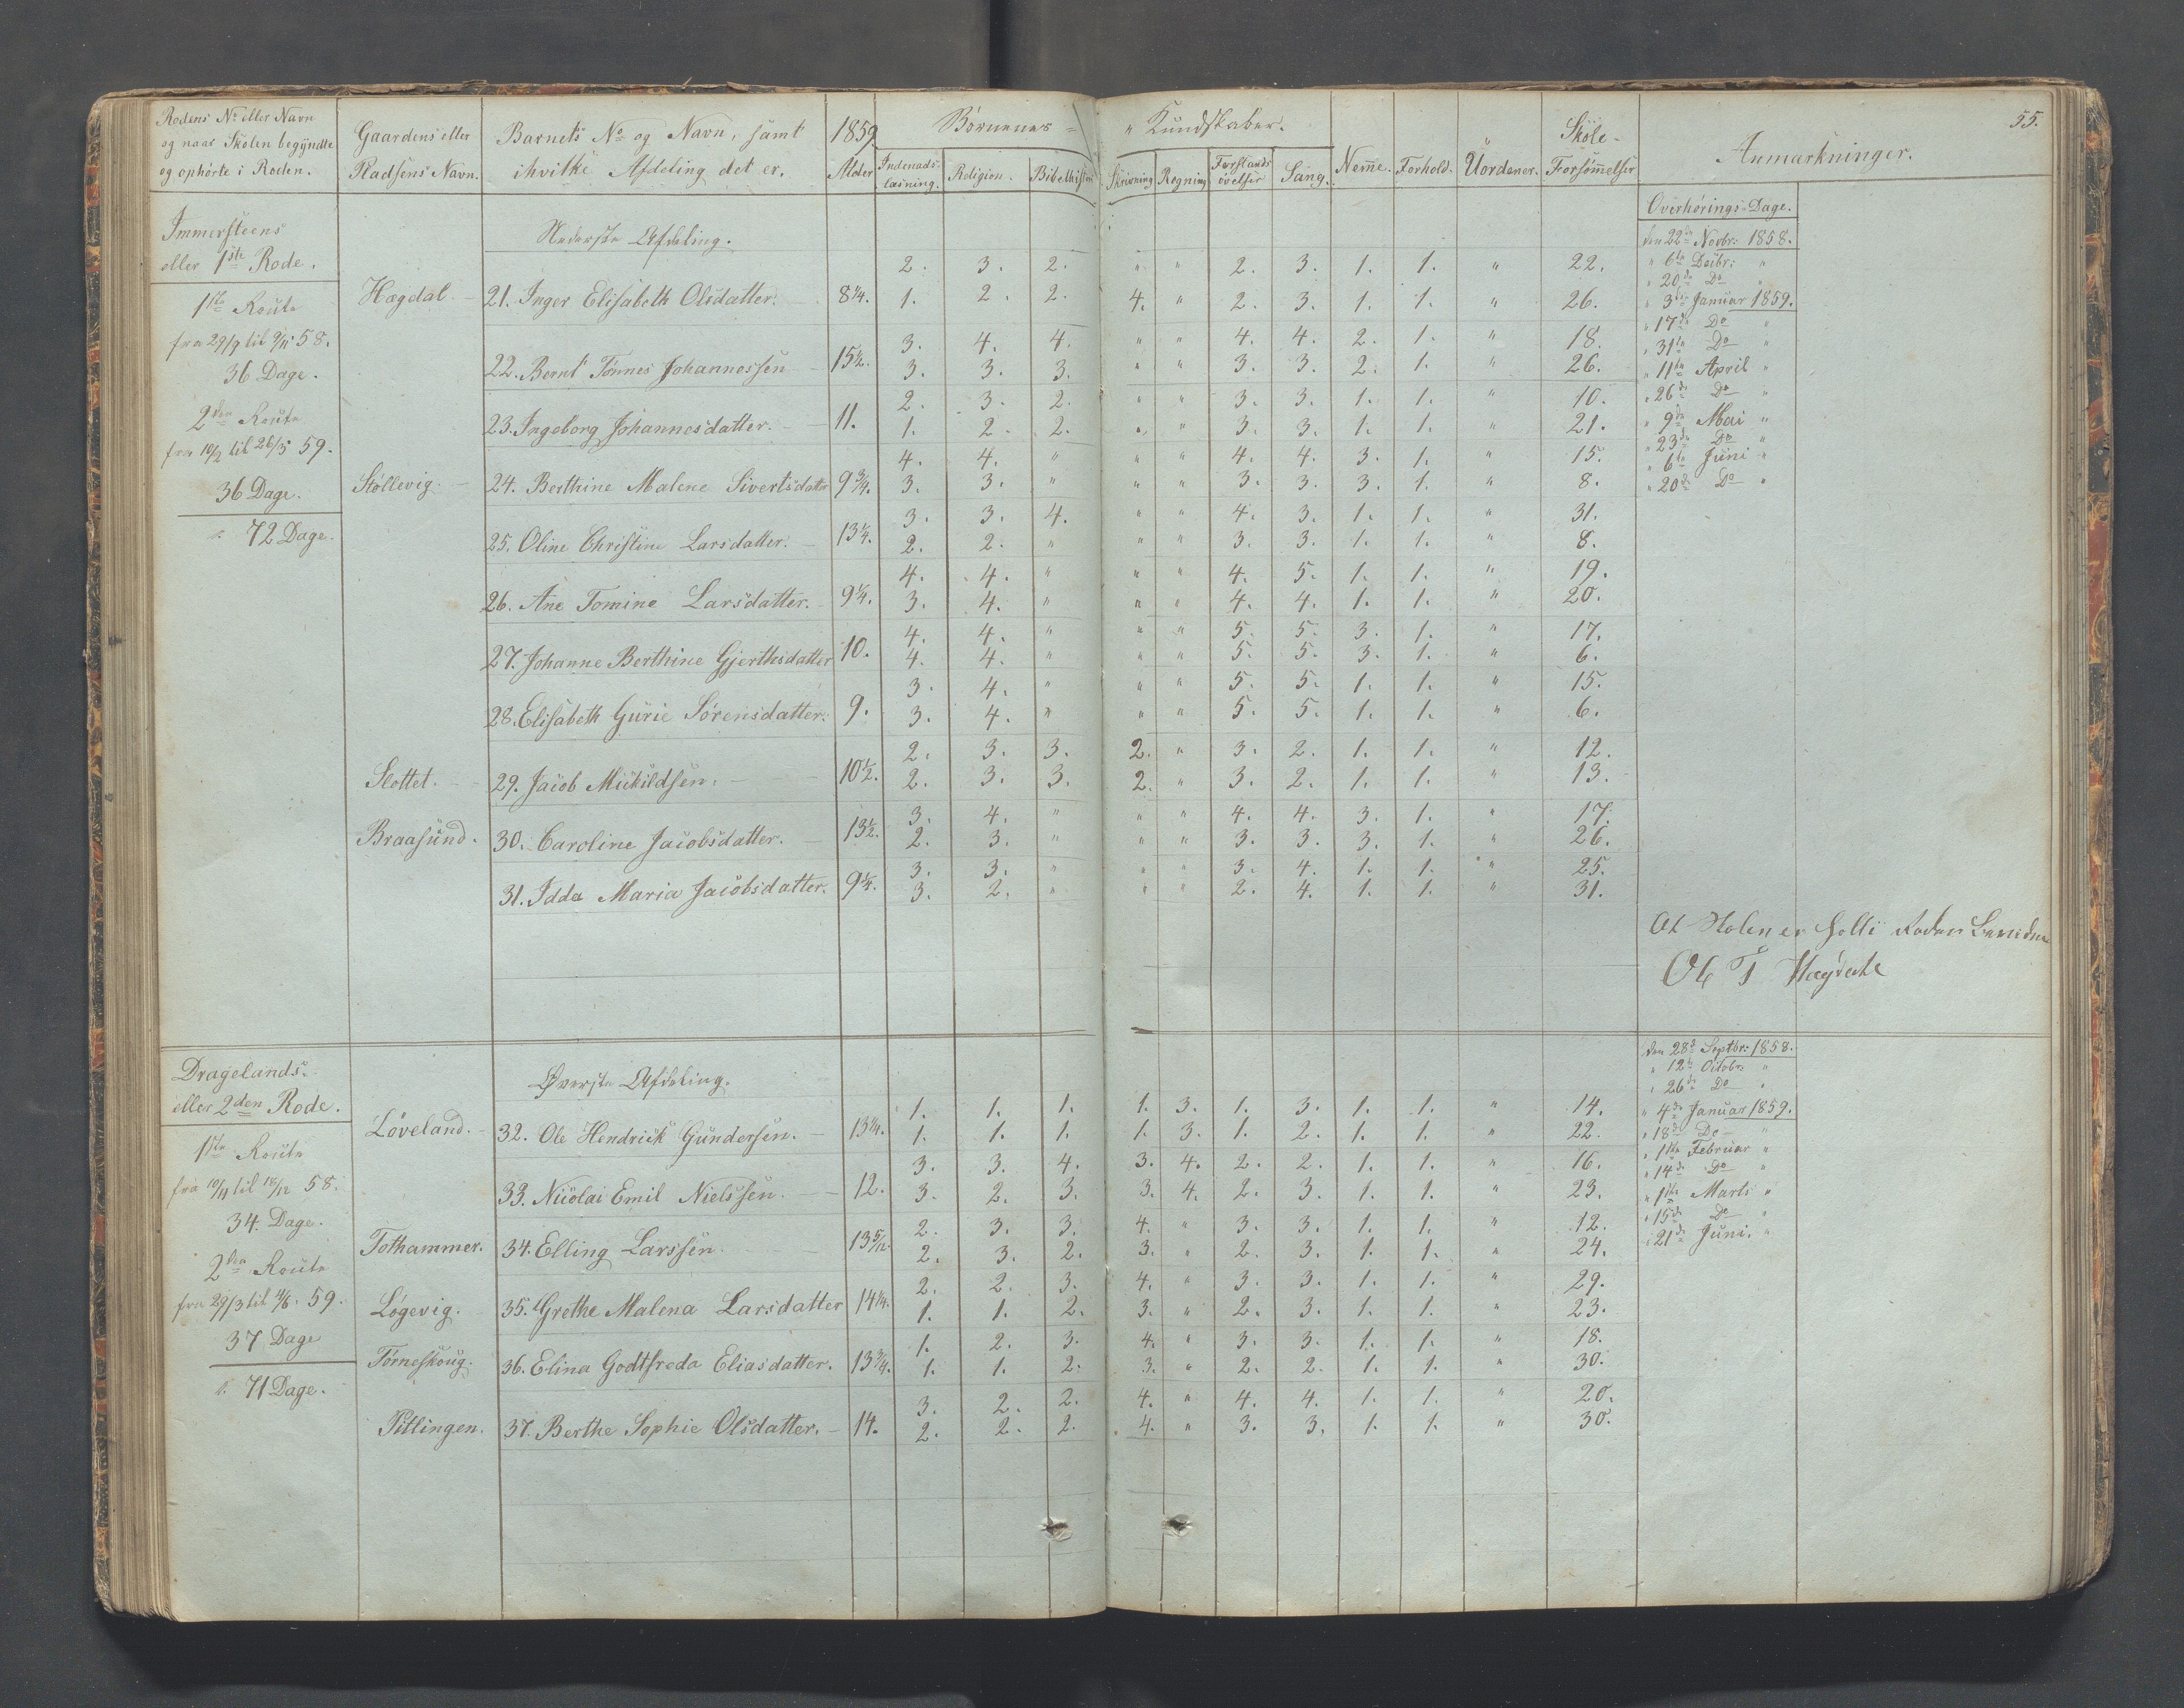 Rodens No eller Navn og naar Skolen begyndte og ophørte i Roden. | Gaardens eller Pladsens Navn. | Barnets No og Navn, samt ihvilke Afdeling det er. | 1859 Alder | Børnenes = " Kundskaber. | Nemme. | Forhold. | Uordener. | Skole-Forsømmelser | Anmærkninger. | 55.
Indenads-læsning. | Religion. | Bibelhistorie | Skrivning | Regning | Forstands øvelser | Sang.
Immersteens eller 1ste Rode.
1ste Route
fra 29/9 til 9/11 58.
36 Dage.
2den Route
fra 10/2 til 26/5 59.
36 Dage.
72 Dage.
Nederste Afdeling.
2. 3. 2. " " 2. 3. 1. 1. " 22.
Hægdal. 21. Inger Elisabeth Olsdatter. 8 1/4. 1. 2. 2. 4. " 2. 3. 1. 1. " 26.
3. 4. 4. " " 4. 4. 2. 1. " 18.
22. Bernt Tønnes Johannessen 15 1/2. 3. 3. 3. " " 3. 3. 2. 1. " 26.
2. 3. 2. " " 3. 3. 1. 1. " 10.
23. Ingeborg Johannesdatter. 11. 1. 2. 2. " " 3. 3. 1. 1. " 21.
4. 4. " " " 4. 4. 3. 1. " 15.
Støllevig. 24. Berthine Malene Sivertsdatter 9 3/4. 3. 3. " " " 3. 3. 3. 1. " 8.
3. 3. 4. " " 4. 3. 1. 1. " 31.
25. Oline Christine Larsdatter. 13 1/4. 2. 2. " " " 3. 3. 1. 1. " 8.
4. 4. " " " 4. 5. 1. 1. " 19.
26. Ane Tomine Larsdatter. 9 1/4. 3. 4. " " " 4. 4. 1. 1. " 20.
4. 4. " " " 5. 5. 3. 1. " 17.
27. Johanne Berthine Gjerthsdatter 10. 4. 4. " " " 5. 5. 3. 1. " 6.
3. 4. " " " 5. 5. 1. 1. " 15.
28. Elisabeth Gurie Sørensdatter. 9. 3. 4. " " " 5. 5. 1. 1. " 6.
2. 3. 3. 2. " 3. 2. 1. 1. " 12.
Slottet. 29. Jacob Mickildsen. 10 1/2. 2. 3. 3. 2. " 3. 2. 1. 1. " 13.
3. 4. " " " 4. 4. 3. 1. " 17.
Braasund. 30. Caroline Jacobsdatter. 13 1/2. 2. 3. " " " 3. 3. 3. 1. " 26.
3. 3. " " " 3. 4. 1. 1. " 25.
31. Idda Maria Jacobsdatter. 9 1/4. 3. 2. " " " 2. 4. 1. 1. " 31.
Overhørings-Dage.
den 22de Novbr: 1858.
" 6te Decbr: "
" 20de Do "
" 3die Januar 1859.
" 17de Do "
" 31te Do "
" 11te April "
" 26de Do "
" 9de Mai "
" 23de Do "
" 6te Juni "
" 20de Do "
At Skolen er holt i Roden
Ole T Hægdal
Dragelands. eller 2den Rode.
1ste Route
fra 10/11 til 18/12 58.
34. Dage.
2den Route
fra 29/3 til 4/6. 59.
37 Dage
71 Dage.
Øverste Afdeling.
1. 1. 1. 1. 3. 1. 3. 1. 1. " 14.
Løveland. 32. Ole Hendrick Gundersen. 13 1/4. 1. 1. 1. 1. 3. 1. 2. 1. 1. " 22.
3. 3. 4. 3. 4. 2. 2. 1. 1. " 16.
33. Nicolai Emil Nielssen. 12. 3. 2. 3. 3. 4. 2. 3. 1. 1. " 23.
2. 3. 3. 4. " 3. 3. 1. 1. " 12.
Tothammer. 34. Elling Larssen. 13 5/12. 2. 3. 2. 3. " 2. 3. 1. 1. " 24.
2. 2. 3. 4. " 3. 3. 1. 1. " 29.
Løgevig. 35. Grethe Malena Larsdatter 14 1/4. 1. 1. 2. 3. " 2. 3. 1. 1. " 23.
1. 2. 3. 4. " 3. 3. 1. 1. " 18.
Tørneskoug. 36. Elina Godtfreda Eliasdatter. 13 3/4. 1. 1. 2. 3. " 2. 2. 1. 1. " 30.
3. 2. 2. 4. " 4. 4. 1. 1. " 20.
Pitlingen. 37. Berthe Sophie Olsdatter. 14. 2. 2. 2. 4. " 3. 3. 1. 1. " 30.
den 28de Septbr: 1858.
" 12te Octobr: "
" 26de Do "
" 4de Januar 1859.
" 18de Do "
" 1ste Februar "
" 14de Do "
" 1ste Marts "
" 15de Do "
" 21de Juni. "